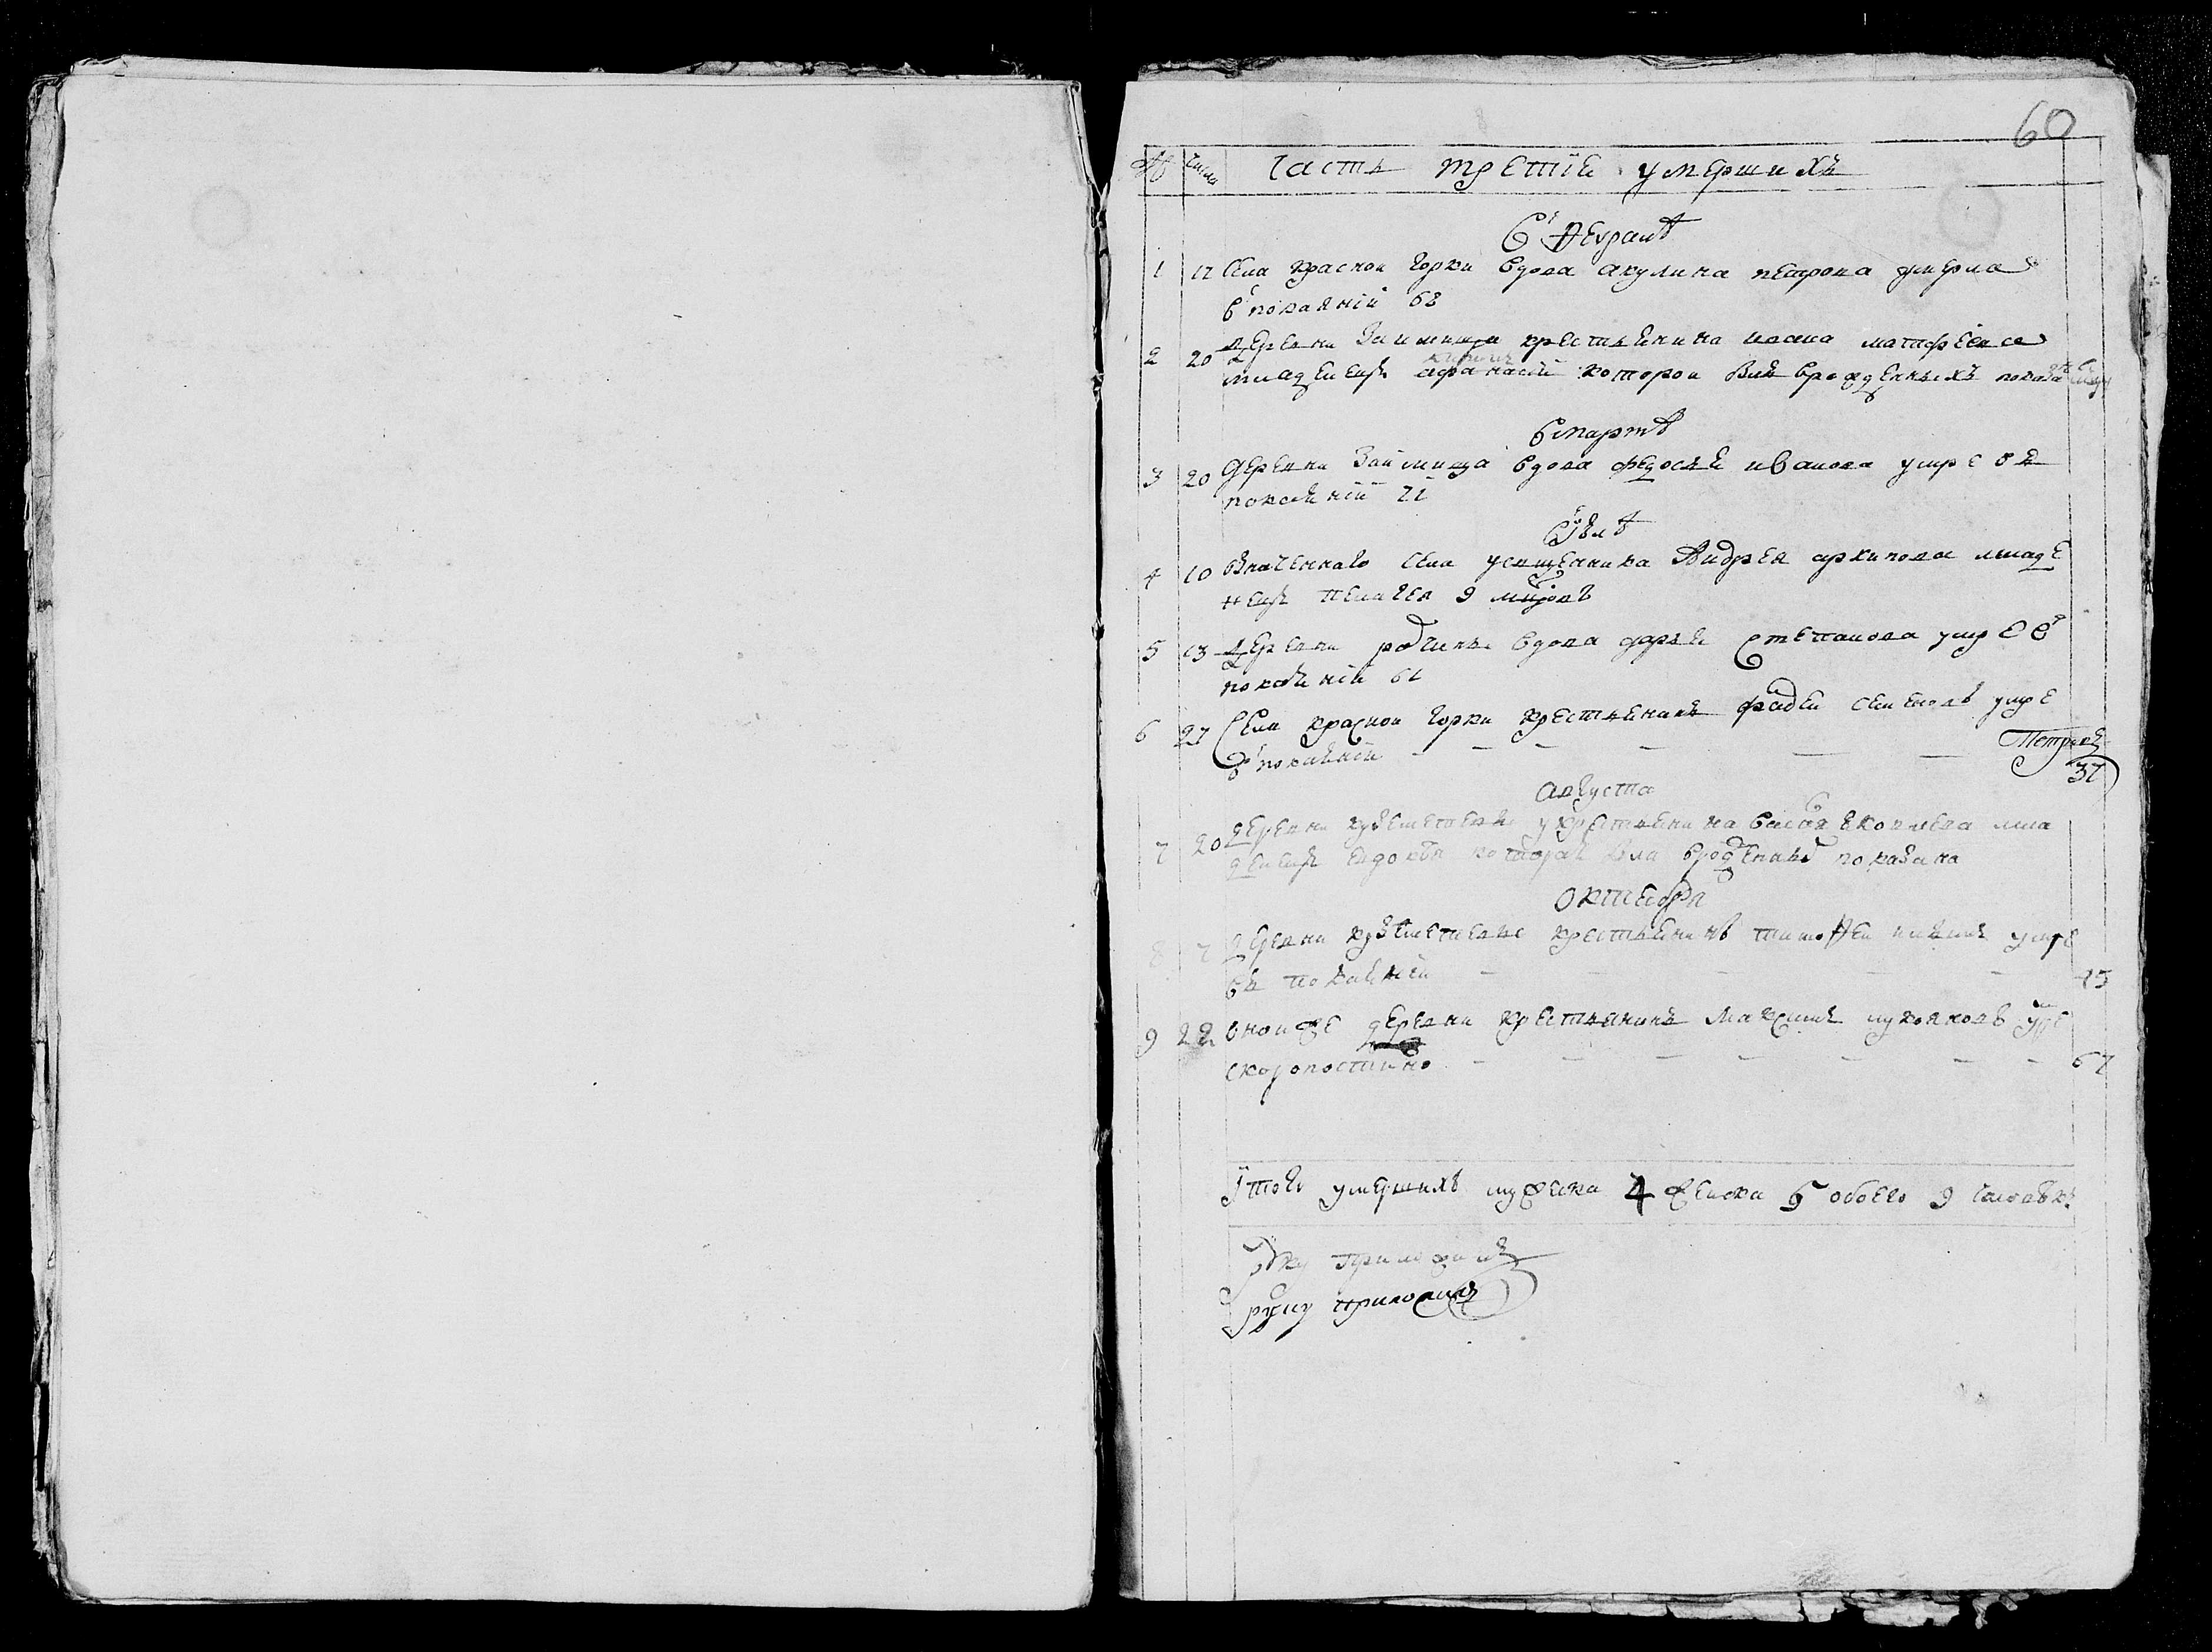 60
№ числа Часть третїе умершихъ
в Феврале
1 12 села красной горки вдова акулина петрова умерла
в покаянїи 68
2 20 деревни Займища крестьянина ивана матфеева
младенецъ афанасїй которой былъ врожденныхъ показа
в мартѣ
3 20 деревни Займища вдова федосья иванова умре въ
покаянїи 71
в Июлѣ
4 10 значеннаго села священника Андрея архипова младе
нецъ пелагея 9 месяцовъ
5 13 деревни вдова дарья Степанова умре в
покаянїи 61
6 27 Села красной горки крестьянинъ фадей семеновъ умре
в покаянїи
37
августа
7 20 деревни у крестьянина василья яковлева мла
денецъ евдокия которая была врожденныхъ показана
Октября
8 7 деревни крестьянинъ тимофей умре
въ покаянїи 45
9 22 оной же деревни крестьянинъ Максимъ умре
скоропостижно 67
Итого умершихъ мужеска 4 женска 5 обоего 9 человѣкъ
руку приложилъ
руку приложилъ